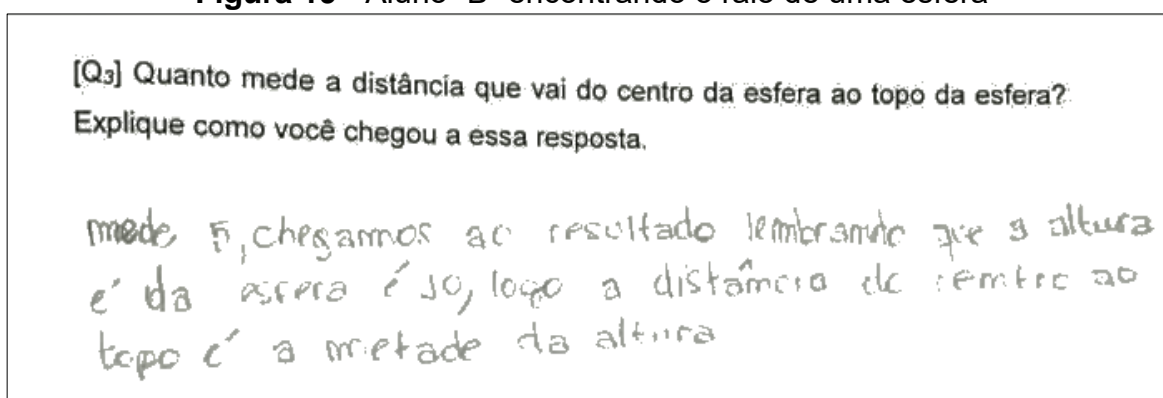 [Q3] Quanto mede a distância que vai do centro da esfera ao topo da esfera?
Explique como você chegou a essa resposta.
mede 5, chegamos ao resultado lembrando que a altura
é da esfera é 10, logo a distância do centro ao
topo é a metade da altura